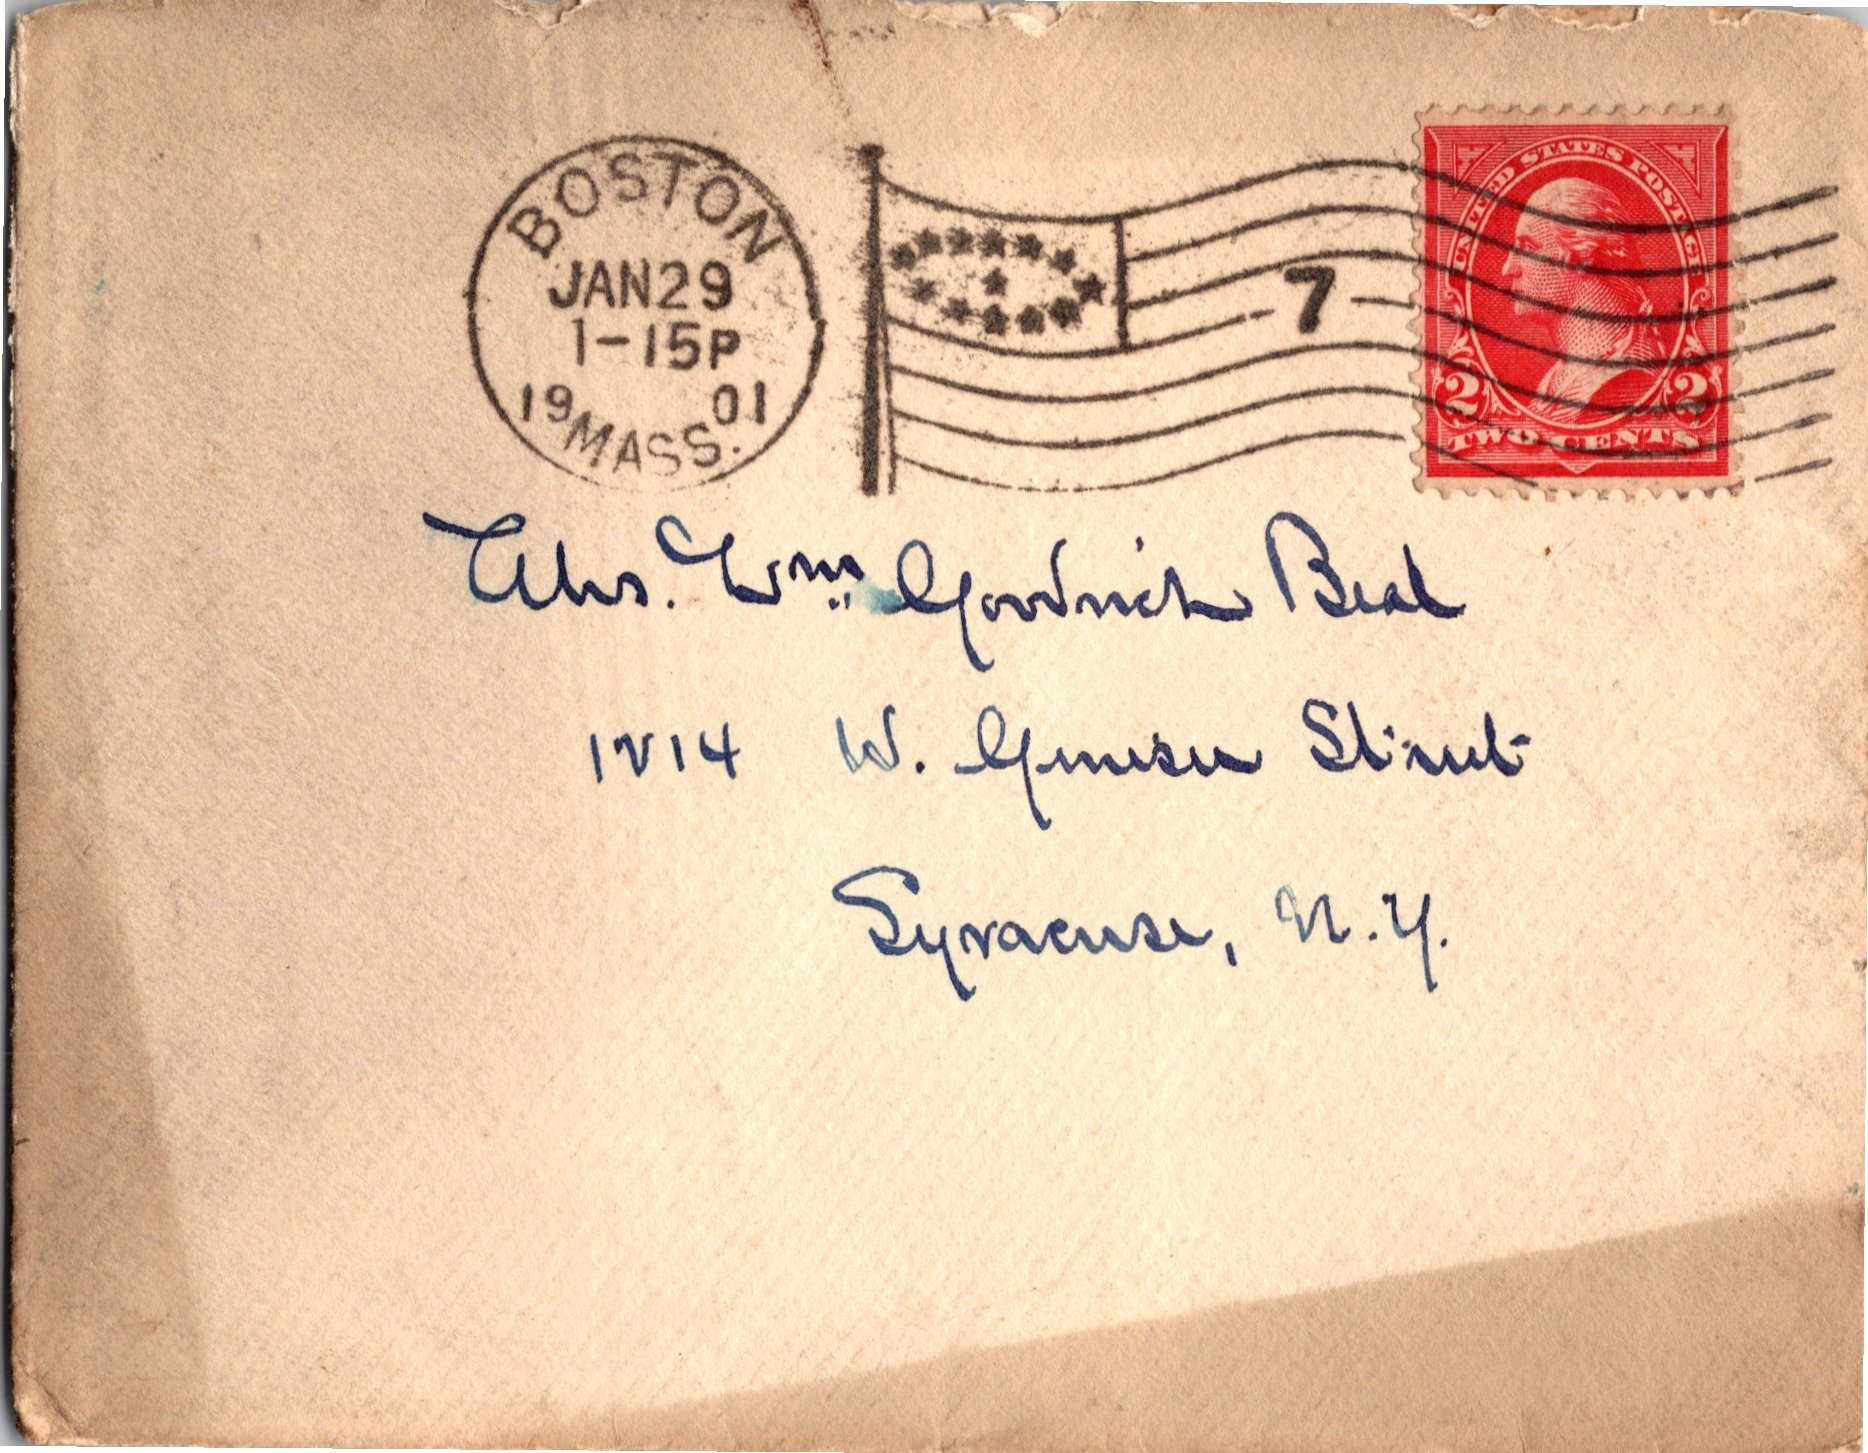 BOSTON
JAN 29
1-15P
1901
MASS.
7
UNITED STATES POSTAGE
2 2
TWO CENTS
Mrs. Wm. Goodrich Beal
1214 W. Genesee Street
Syracuse, N.Y.